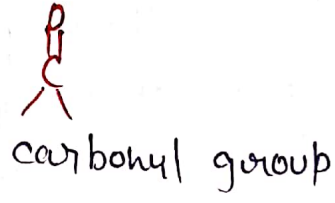 O
C
carbonyl group